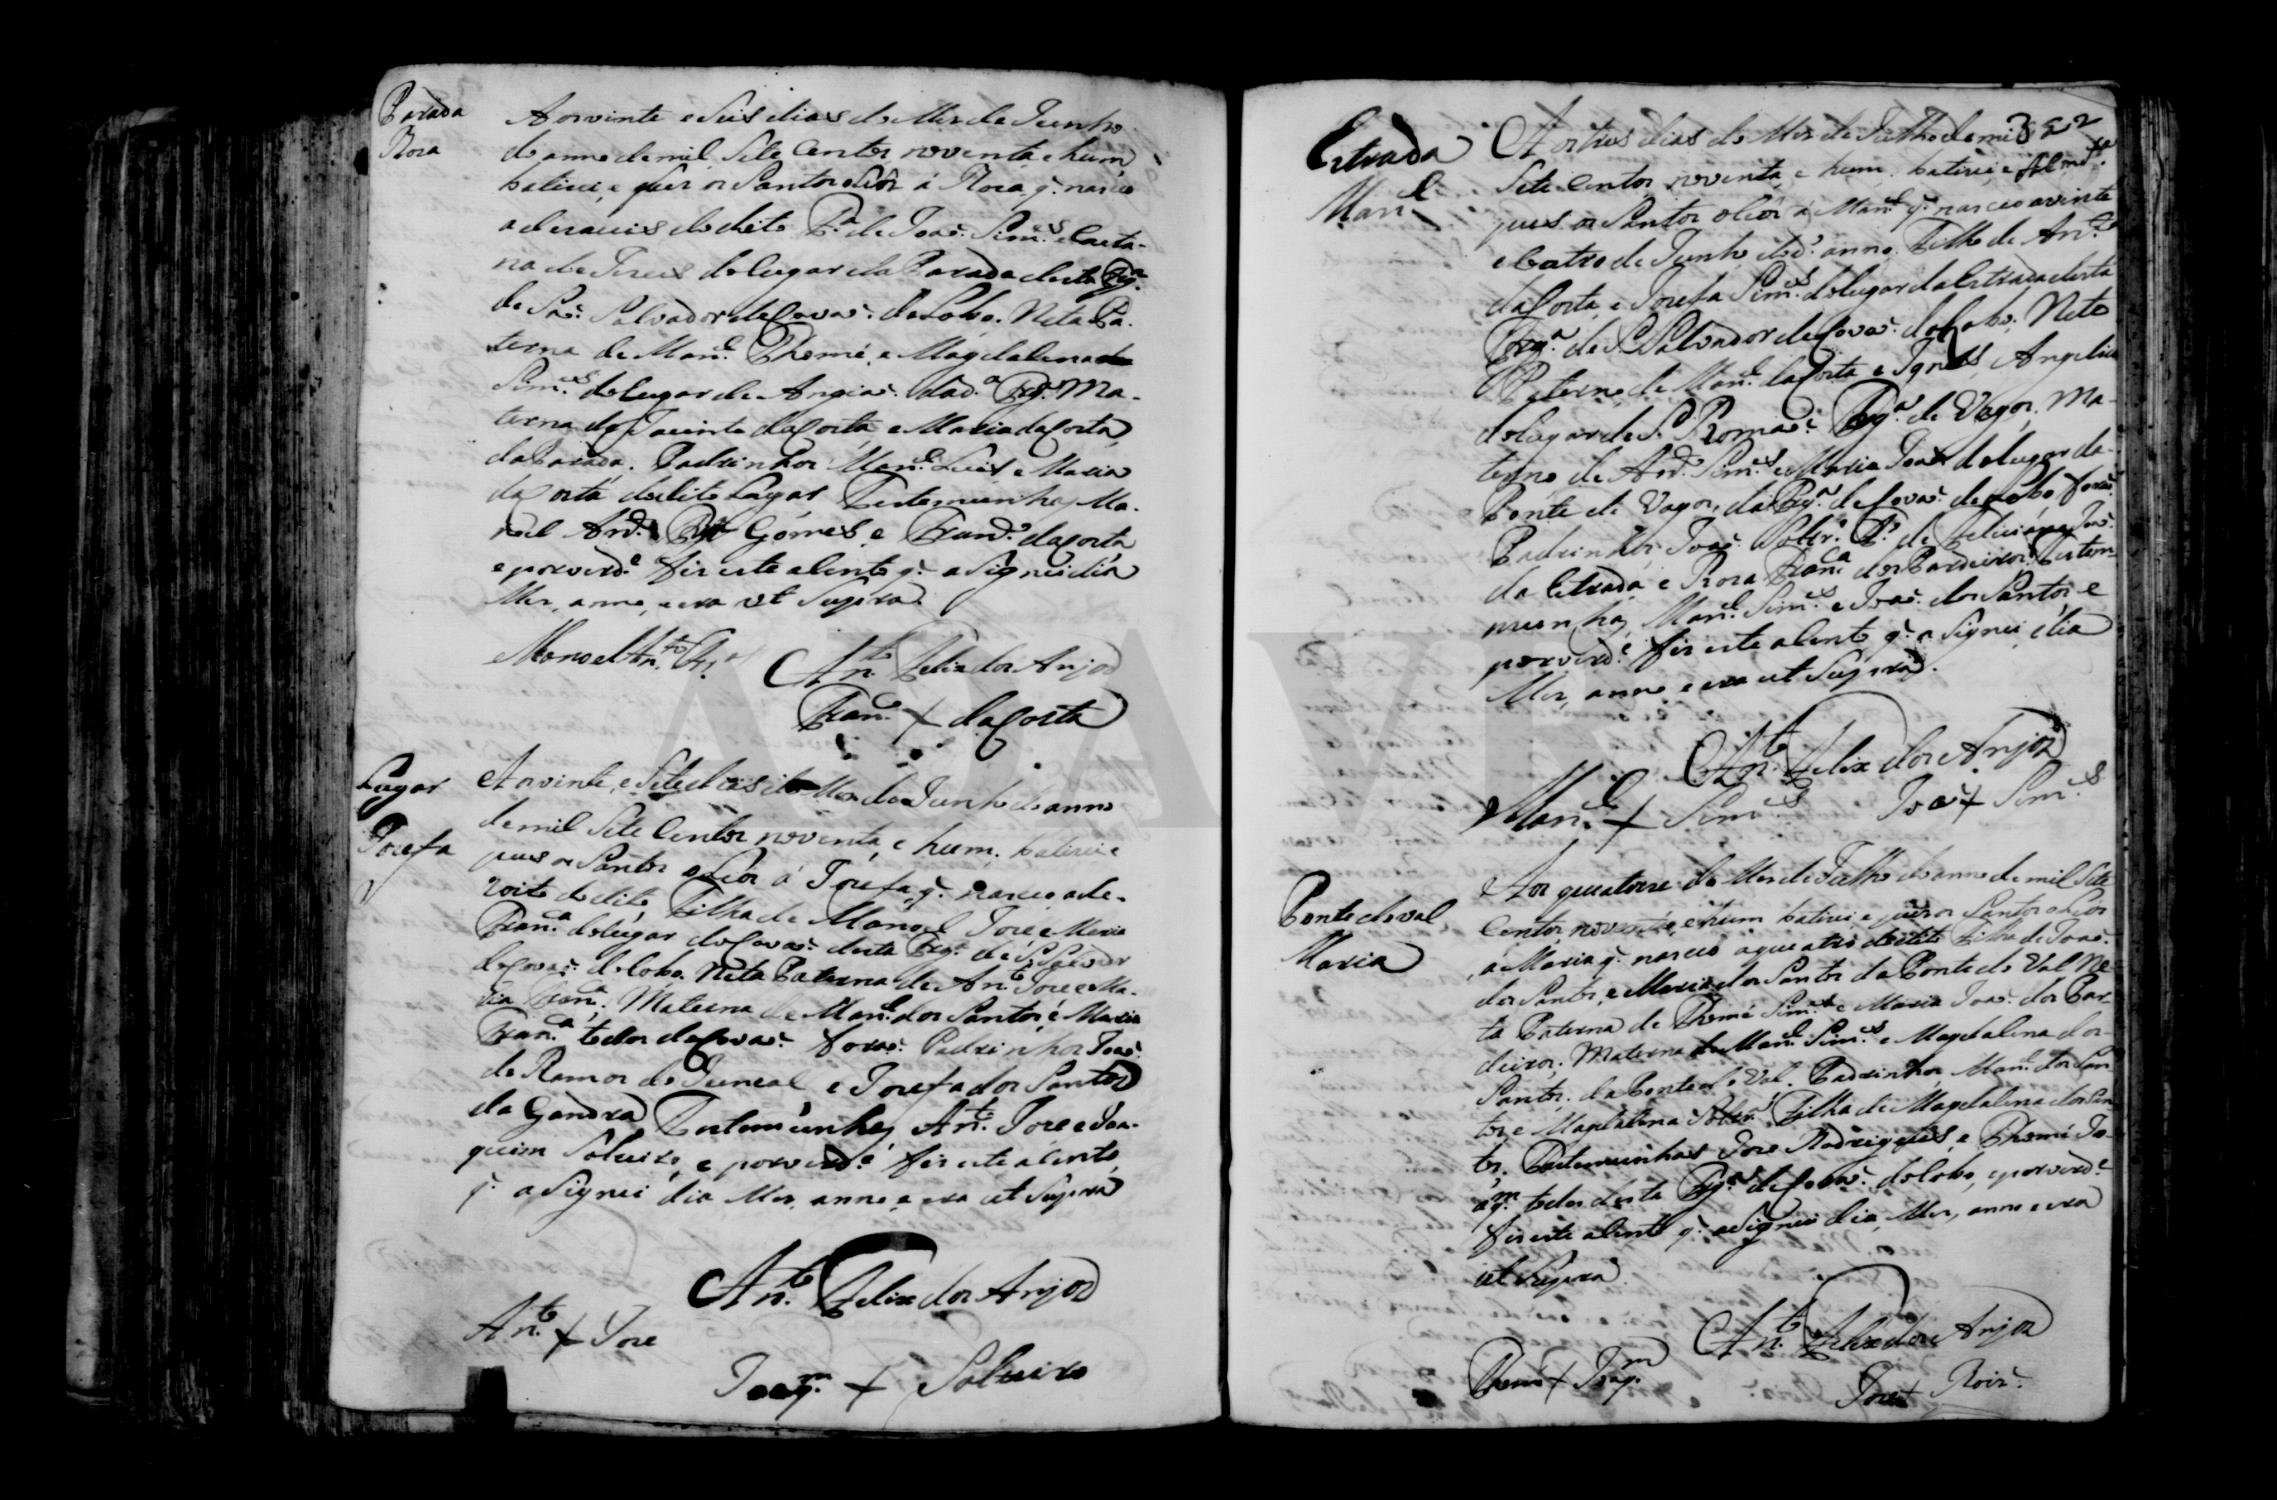 Parada
Roza
Aos vinte e seis dias do Mes de Junho
do anno de mil sete centos noventa, e hum
batizei, e pus os Santos oleos á Roza q. nasceo
a dezaseis do dito F.ª de Joaõ Sim.es e Caeta-
na de Jezus do lugar da Parada desta Frg.ª
de Saõ Salvador de Covaõ do Lobo. Neta Pa-
terna de Man.el Thomé, e Magdalena
Sim.es do lugar de Angiaõ da d.ª Frg.ª Ma-
terna de Jacinto da Costa, e Maria da Costa
da Parada. Padrinhos Man.el Luis, e Maria
da Costa do dito Lugar Testemunhas Ma-
noel Gomes, e Fran.co da Costa
e por verd.e fis este asento q. asignei dia
Mes, anno, e era ut supra.
Manoel An.to
An.to Felix dos Anjos
Fran.co + da Costa
Lugar
Josefa
Aos vinte, e sete dias do Mes de Junho do anno
de mil sete centos noventa, e hum, batizei e
pus os Santos oleos á Josefa q. nasceo a de-
zoito do dito, Filha de Manoel José e Maria
Fran.ca do lugar de Covaõ desta Frg.ª de S. Salvador
de Covaõ do Lobo. Neta Paterna de An.to Jose e Ma-
ria Fran.ca, Materna de Man.el dos Santos, e Maria
Fran.ca todos de Covaõ foraõ Padrinhos Joaõ
de Ramos do Juncal, e Josefa dos Santos
da Gandra Testemunhas An.to Jose e Joa-
quim Solteiro, e por verd.e fis este asento,
q. asignei dia Mes, anno, e era ut supra
An.to Felix dos Anjos
An.to + Jose
Joaq.m + Solteiro
322
Estrada
Man.el
Aos tres dias do Mes de Julho de mil
sete centos noventa, e hum, batizei, e
pus os Santos oleos á Man.el q. nasceo a vinte
e coatro de Junho do d.o anno. Filho de An.to
da Costa, e Josefa Sim.es do lugar da Estrada desta
Frg.ª de S. Salvador de Covaõ do Lobo. Neto
Paterno de Man.el da Costa e Ignes Angelica
do lugar de S. Romaõ Frg.ª de Vagos, Ma-
terno de Sim.es e Maria Joaõ do lugar da
Ponte de Vagos, da Frg.ª de Covaõ do Lobo foraõ
Padrinhos Joaõ Solt.ro F.o de Joaõ
da Estrada e Roza Fran.ca dos Pardeiros. Testem-
munhas Man.el Sim.es e Joaõ dos Santos e
por verd.e fis este asento q. asignei dia
Mes, anno e era ut supra.
An.to Felix dos Anjos
Man.el + Sim.es
Joaõ + Sim.es
Ponte do val
Maria
Aos quatorze do Mes de Julho do anno de mil sete
centos, noventa, e hum batizei, e pus os Santos oleos
á Maria q. nasceo a quatro do dito Filha de Joaõ
dos Santos, e Maria dos Santos da Ponte do Val Ne-
ta Paterna de Thomé Sim.es e Maria Joaõ dos Par-
deiros; Materna de Man.el Sim.es e Magdalena dos
Santos, da Ponte do Val. Padrinhos Man.el dos San-
tos e Magdalena Solt.ra Filha de Magdalena dos San-
tos, Testemunhas Jose Rodrigues, e Thomé Jo-
aq.m todos desta Frg.ª de Covaõ do Lobo, e por verd.e
fis este asento q. asignei dia, Mes, anno e era
ut supra
An.to Felix dos Anjos
Thome + Joaq.m
Jose + Roiz.
ADAVR